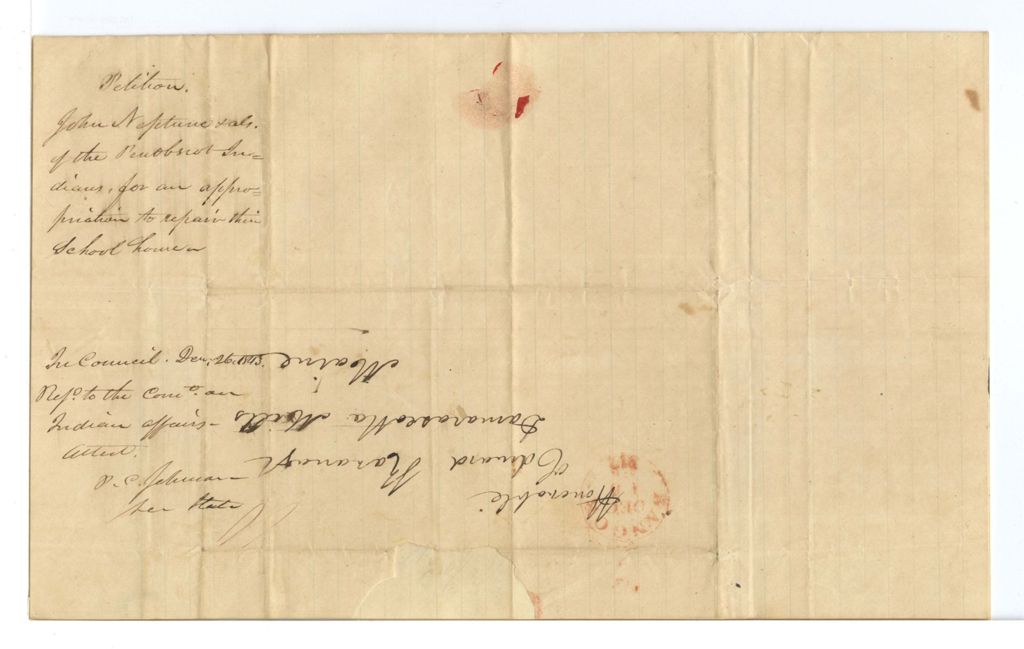 Petition.
John Neptune & als.
of the Penobscot In=
dians, for an appro=
priation to repair their
School house
In Council. Dec. 26. 1843.
Ref.d to the Com.ee on
Indian affairs
Attest.
P. C. Johnson
Sec State
Honorable
Edward Kavanagh
Damarascotta Mills
Maine
BANGOR